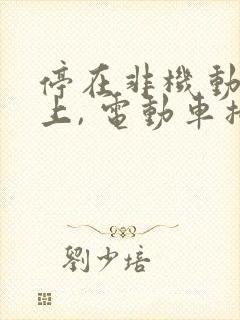 停在非機動
上，電動車
劉少培